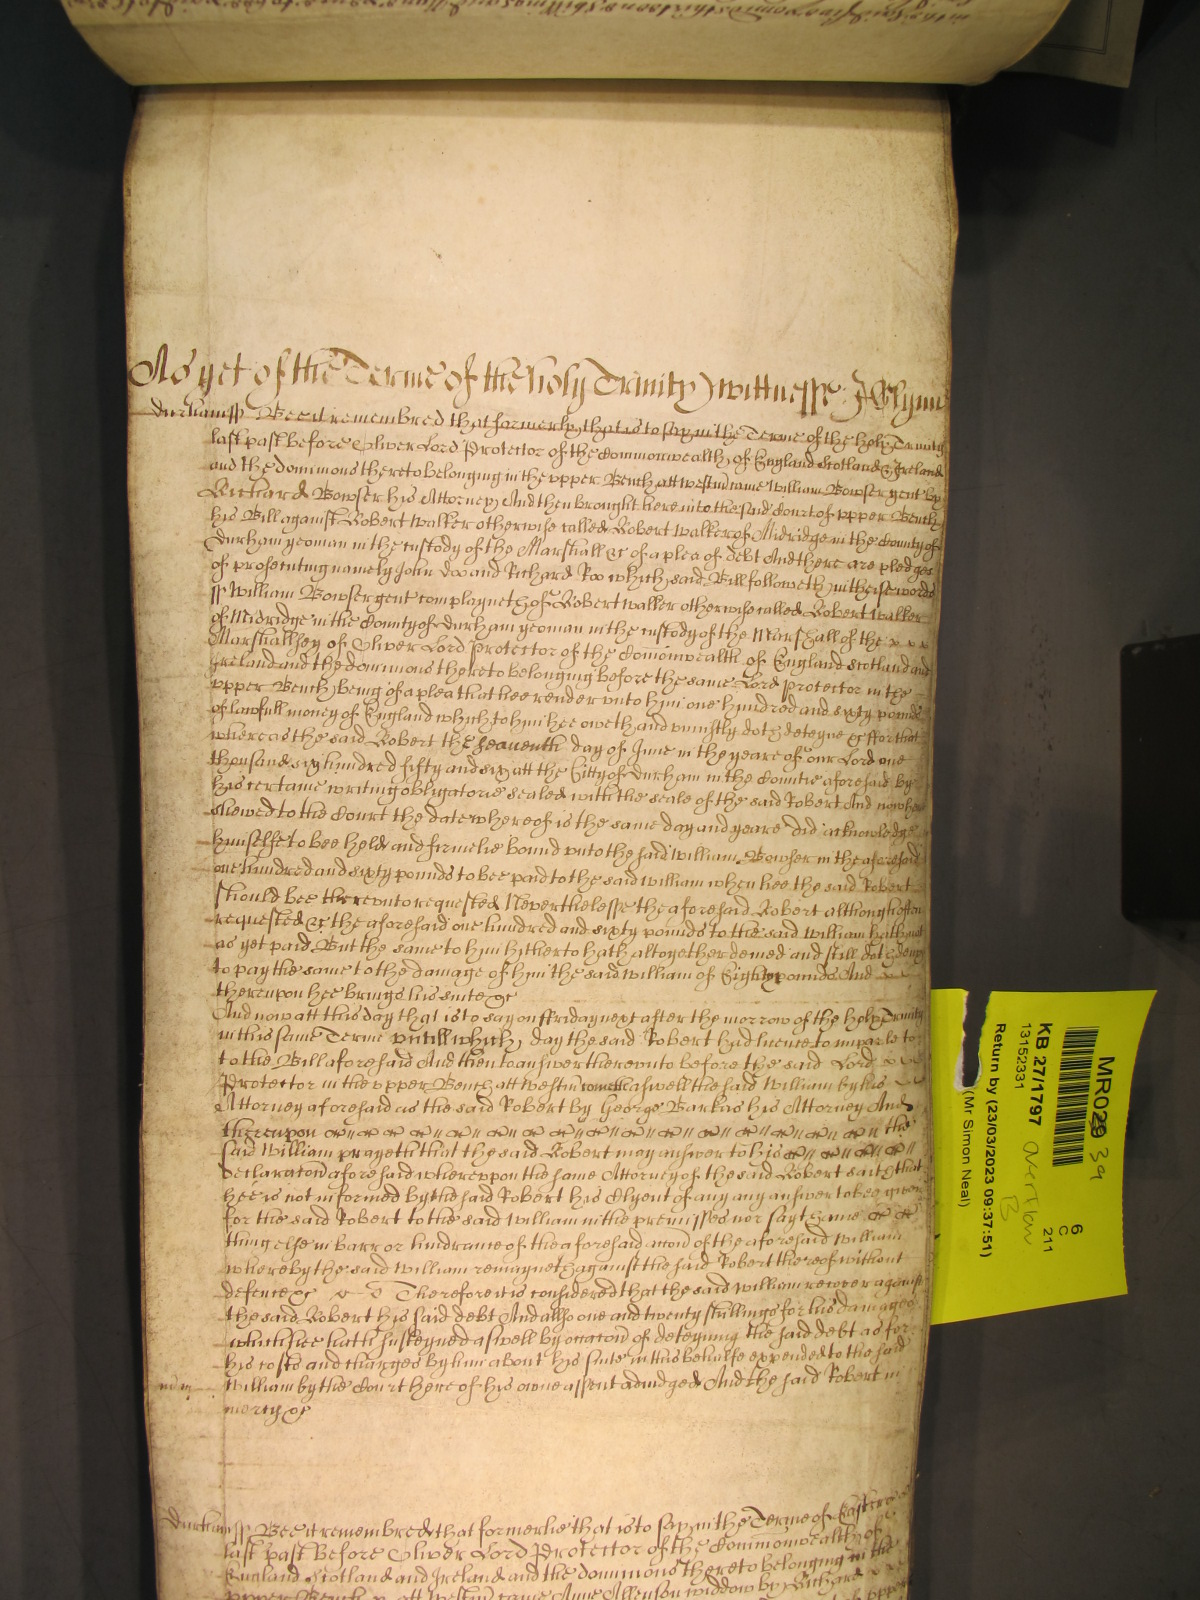 As yet of the Terme of the holy Trinity wittnesse J Glynn
Durham ss Bee it remembred that formerly that is to say in the Terme of the holy Trinity
last past before Oliver Lord Protector of the Commonwealth of England Scotland & Ireland
and the dominions thereto belonging in the upper Bench att westm came William Bowser gent by
Richard Bowser his Attorney And then brought here into the said Court of upper Bench
his Bill against Robert Walker otherwise called Robert Walker of Midridge in the County of
Durham yeoman in the custody of the Marshall &c of a plea of debt And there are pledges
of prosecuting namely John Doo and Richard Roo which said Bill followeth in theise words
ss William Bowser gent complayneth of Robert Walker otherwise called Robert Walker
of Midridge in the County of Durham yeoman in the custody of the Marshall of the
Marshallsey of Oliver Lord Protector of the Comonwealth of England Scotland and
Ireland and the dominions thereto belonging before the same Lord protector in the
upper Bench being of a plea that hee render unto him one hundred and sixty pounds
of lawfull money of England which to him hee oweth and uniustly doth deteyne &c ffor that
whereas the said Robert the seaventh day of June in the yeare of our Lord one
thousand six hundred fifty and six att the Citty of Durham in the Countie aforesaid by
his certaine writing obligatorie sealed with the seale of the said Robert And now here
shewed to the Court the date whereof is the same day and yeare did acknowledge
himselfe to bee held and firmelie bound unto the said William Bowser in the aforesaid
one hundred and sixty pounds to bee paid to the said William when hee the said Robert
should bee thereunto requested Neverthelesse the aforesaid Robert although often
requested &c the aforesaid one hundred and sixty pounds to the said William hath not
as yet paid But the same to him hitherto hath altogether denied and still doth deny
to pay the same to the damage of him the said William of Eighty pounds And
thereupon hee brings his suite &c
And now att this day that is to say on ffriday next after the morrow of the holy Trinity
in this same Terme untill which day the said Robert had licence to imparle to
to the Bill aforesaid And then to answer thereunto before the said Lord
Protector in the upper Bench att westm come aswell the said William by his
Attorney aforesaid as the said Robert by George Barkas his Attorney And
thereupon the
said William prayeth that the said Robert may answer to his
declaration aforesaid whereupon the same Attorney of the said Robert saith that
hee is not informed by the said Robert his Clyent of any any answer to bee given
for the said Robert to the said William in the premisses nor sayth
thing else in barr or hindrance of the aforesaid accon of the aforesaid William
whereby the said William remayneth against the said Robert thereof without
defence &c Therefore it is considered that the said William recover against
the said Robert his said debt And allso one and twenty shillings for his damages
which hee hath susteyned aswell by occacon of deteyning the said debt as for
his costs and charges by him about his suite in this behalfe expended to the said
William by the Court here of his owne assent adiudged And the said Robert in
mercy &c
Durham ss Bee it remembred that formerlie that is to say in the Terme of Easter
last past before Oliver Lord Protector of the Commonwealth of
England Scotland and Ireland and the dominions thereto belonging in the
upper Bench att westm came Anne Allenson widdow by Richard
MR029 39
6
C
211
KB 27/1797 overflow
B
13152331
Return by (23/03/2023 09:37:51)
(Mr Simon Neal)